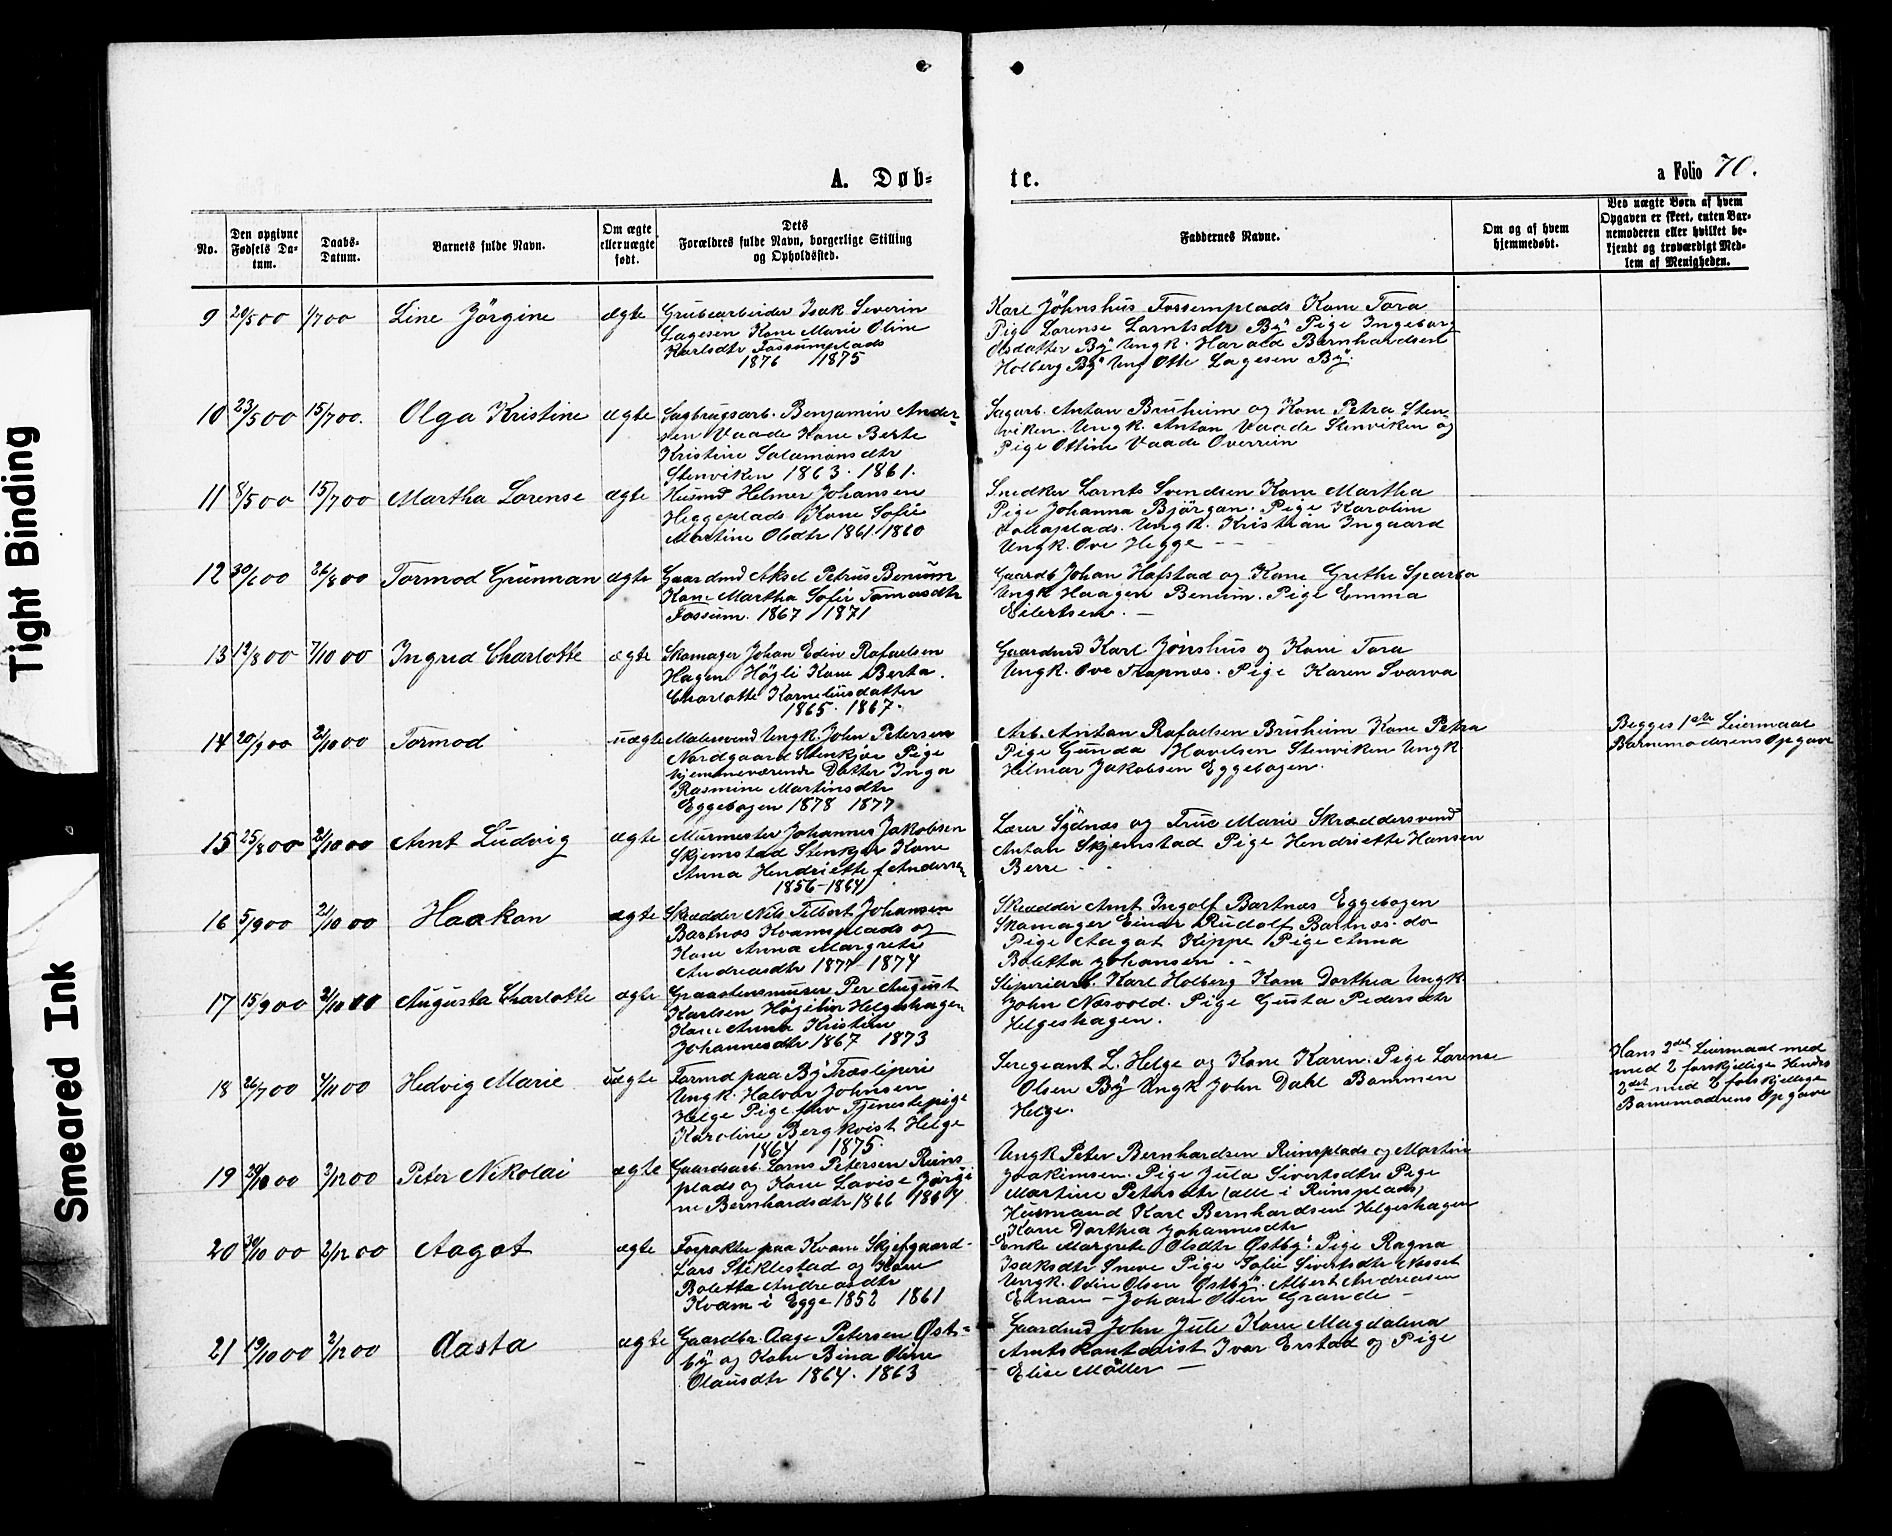 Tight Binding
Smeared Ink
A. Døb-
te.
a Folio 70.
No.
Den opgivne
Fødsels Da-
tum.
Daabs-
Datum.
Barnets fulde Navn.
Om ægte
eller uægte
født.
Dets
Forældres fulde Navn, borgerlige Stilling
og Opholdssted.
Faddernes Navne.
Om og af hvem
hjemmedøbt.
Ved uægte Børn af hvem
Opgaven er skeet, enten Bar-
nemoderen eller hvilket be-
kjendt og troværdigt Med-
lem af Menigheden.
9 20/5 00 1/7 00 Line Jörgine ægte
Grubearbeider Isak Severin
Lagesen Kone Marie Oline
Karlsdtr Fossumplads
1876 1875
Karl Jöhnshus Fossemplads Kone Tora
Pige Lorense Larntsdtr By Pige Ingeborg
Olsdatter By Ungk. Harald Bernhardsen
Holberg By Ung Otte Lagesen By.
10 23/5 00 15/7 00. Olga Kristine ægte
Sagbrugsarb. Benjamin Ander-
sen Vaade Kone Berte
Kristine Salamonsdtr
Stenviken 1863. 1861.
Sagarb. Anton Bruheim og Kone Petra Sten-
viken. Ungk. Anton Vaade Stenviken og
Pige Ottine Vaade Overrein
11 8/5 00 15/7 00 Martha Lorense ægte
Husmd Helmer Johansen
Heggeplads Kone Sofie
Martine Olsdtr 1861. 1860
Snedker Larnts Svendsen Kone Martha
Pige Johanna Björgan. Pige Karoline
Ungk. Kristian Ingaard
Ungk. Ove Hegge - -
12 30/6 00 26/8 00 Tormod Grünman ægte
Gaardmd Aksel Petrus Benum
Kone Martha Sofie Tomasdtr
Fossum. 1867 1871
Gaardb. Johan Hafstad og Kone Grethe Sparbo
Ungk Haagen Benum. Pige Emma
Eilertsen. -
13 12/8 00 7/10 00 Ingrid Charlotte ægte
Skomager Johan Edin Rafaelsen
Hagen Högli Kone Berta
Charlotte Korneliusdatter
1865. 1867.
Gaardmd Karl Jónshus og Kone Tora
Ungk. Ove Trapnes. Pige Karen Svarva
14 20/9 00 21/10 00 Tormod uægte
Malersvend Ungk. John Petersen
Nordgaard Stenkjær Pige
hjemmeværende Datter Inga
Rasmine Martinsdtr
Eggebogen 1878 1877
Arb. Anton Rafaelsen Bruheim Kone Petra
Pige Gunda Havelsen Stenviken Ungk
Hilmar Jakobsen Eggebogen.
Begges 1ste Leiermaal
Barnemoderens Opgave
15 25/8 00 21/10 00 Arnt Ludvig ægte
Murmester Johannes Jakobsen
Skjemstad Stenkjær Kone
Anna Hendriette f Andersen
1856-1864
Lærer Sydnæs og Frue Marie Skræddersvend
Anton Skjemstad Pige Hendriette Hansen
Berre -
16 5/9 00 21/10 00 Haakon ægte
Skrædder Nils Telbert Johansen
Bartnæs Kvamsplads og
Kone Anna Margrete
Andreasdtr 1877-1874
Skrædder Arnt Ingolf Bartnæs Eggebogen
Skomager Einar Rudolf Bartnæs. do
Pige Aagot Kippe Pige Anna
Boletta Johansen . -
17 15/9 00 21/10 00 Augusta Charlotte ægte
Graastensmurer Per August
Karlsen Högelin Helgeshagen
Kone Anna Kristine
Johannesdtr 1867 1873
Sliperiarb. Karl Holberg Kone Dorthea Ungk
John Næsvold. Pige Gusta Pedersdtr
Helgeshagen.
18 26/7 00 4/11 00 Hedvig Marie uægte
Formd paa By Træsliperi
Ungk. Halvor Johnsen
Helge Pige før Tjenestepige
Karoline Bergkvist Helge
1864 1875.
Seregeant L. Helge og Kone Karen. Pige Lorense
Olsen By Ungk John Dahl Bommen
Helge.
Hans 3det Leiermaal med
med 2 forskjellige Hendes
2det med 2 forskjellige
Barnemoderens Opgave
19 29/10 00 2/12 00 Peter Nikolai ægte
Gaardsarb. Lorns Petersen Reins
plads og Kone Lovise Jörgi
ne Bernhardsdtr 1866 1864.
Ungk Peter Bernhardsen Reinsplads og Martin
Joakimsen. Pige Jula Sivertsdtr Pige
Martine Petersdtr (alle i Reinsplads)
Husmand Karl Bernhardsen Helgeshagen
Kone Dorthea Johannesdtr
20 30/10 00 2/12 00 Aagot ægte
Forpakter paa Kvam Skjefgaard-
Lars Stiklestad og Kone
Boletta Andreasdtr
Kvam i Egge 1852 1861
Enke Margrete Olsdtr Østby. Pige Ragna
Isaksdtr Sneve Pige Sofie Sivertsdtr Næsset
Ungk. Odin Olsen Østby. Albert Andreasen
Eknan - Johan Olsen Grande -
21 19/10 00 2/12 00 Aasta ægte
Gaardbr. Aage Petersen Øst-
by og Kone Bina Oline
Olausdtr 1864. 1863
Gaardmd John Jule Kone Magdalena
Amtskontorist Ivar Erstad og Pige
Elise Möller -